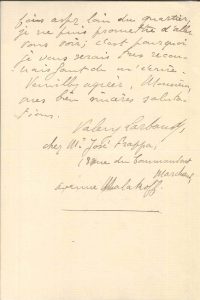 suis assez loin du quartier,
je ne puis promettre d'aller
vous voir; c'est pourquoi
je vous serais très recon-
naissant de m'écrire.
Veuillez agréer, Monsieur,
mes bien sincères saluta-
tions.
Valery Larbaud
chez Mr José Frappa,
rue du Commandant
Marchand,
avenue Malakoff.